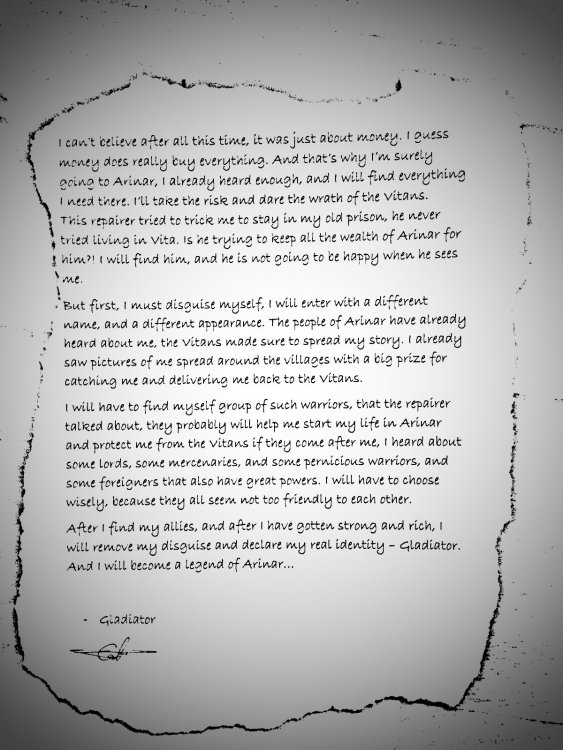 I can't believe after all this time, it was just about money. I guess
money does really buy everything. And that's why I'm surely
going to Arinar, I already heard enough, and I will find everything
I need there. I'll take the risk and dare the wrath of the Vitans.
This repairer tried to trick me to stay in my old prison, he never
tried living in Vita. Is he trying to keep all the wealth of Arinar for
him?! I will find him, and he is not going to be happy when he sees
me.
But first, I must disguise myself, I will enter with a different
name, and a different appearance. The people of Arinar have already
heard about me, the Vitans made sure to spread my story. I already
saw pictures of me spread around the villages with a big prize for
catching me and delivering me back to the Vitans.
I will have to find myself group of such warriors, that the repairer
talked about, they probably will help me start my life in Arinar
and protect me from the Vitans if they come after me, I heard about
some lords, some mercenaries, and some pernicious warriors, and
some foreigners that also have great powers. I will have to choose
wisely, because they all seem not too friendly to each other.
After I find my allies, and after I have gotten strong and rich, I
will remove my disguise and declare my real identity – Gladiator.
And I will become a legend of Arinar...
- Gladiator